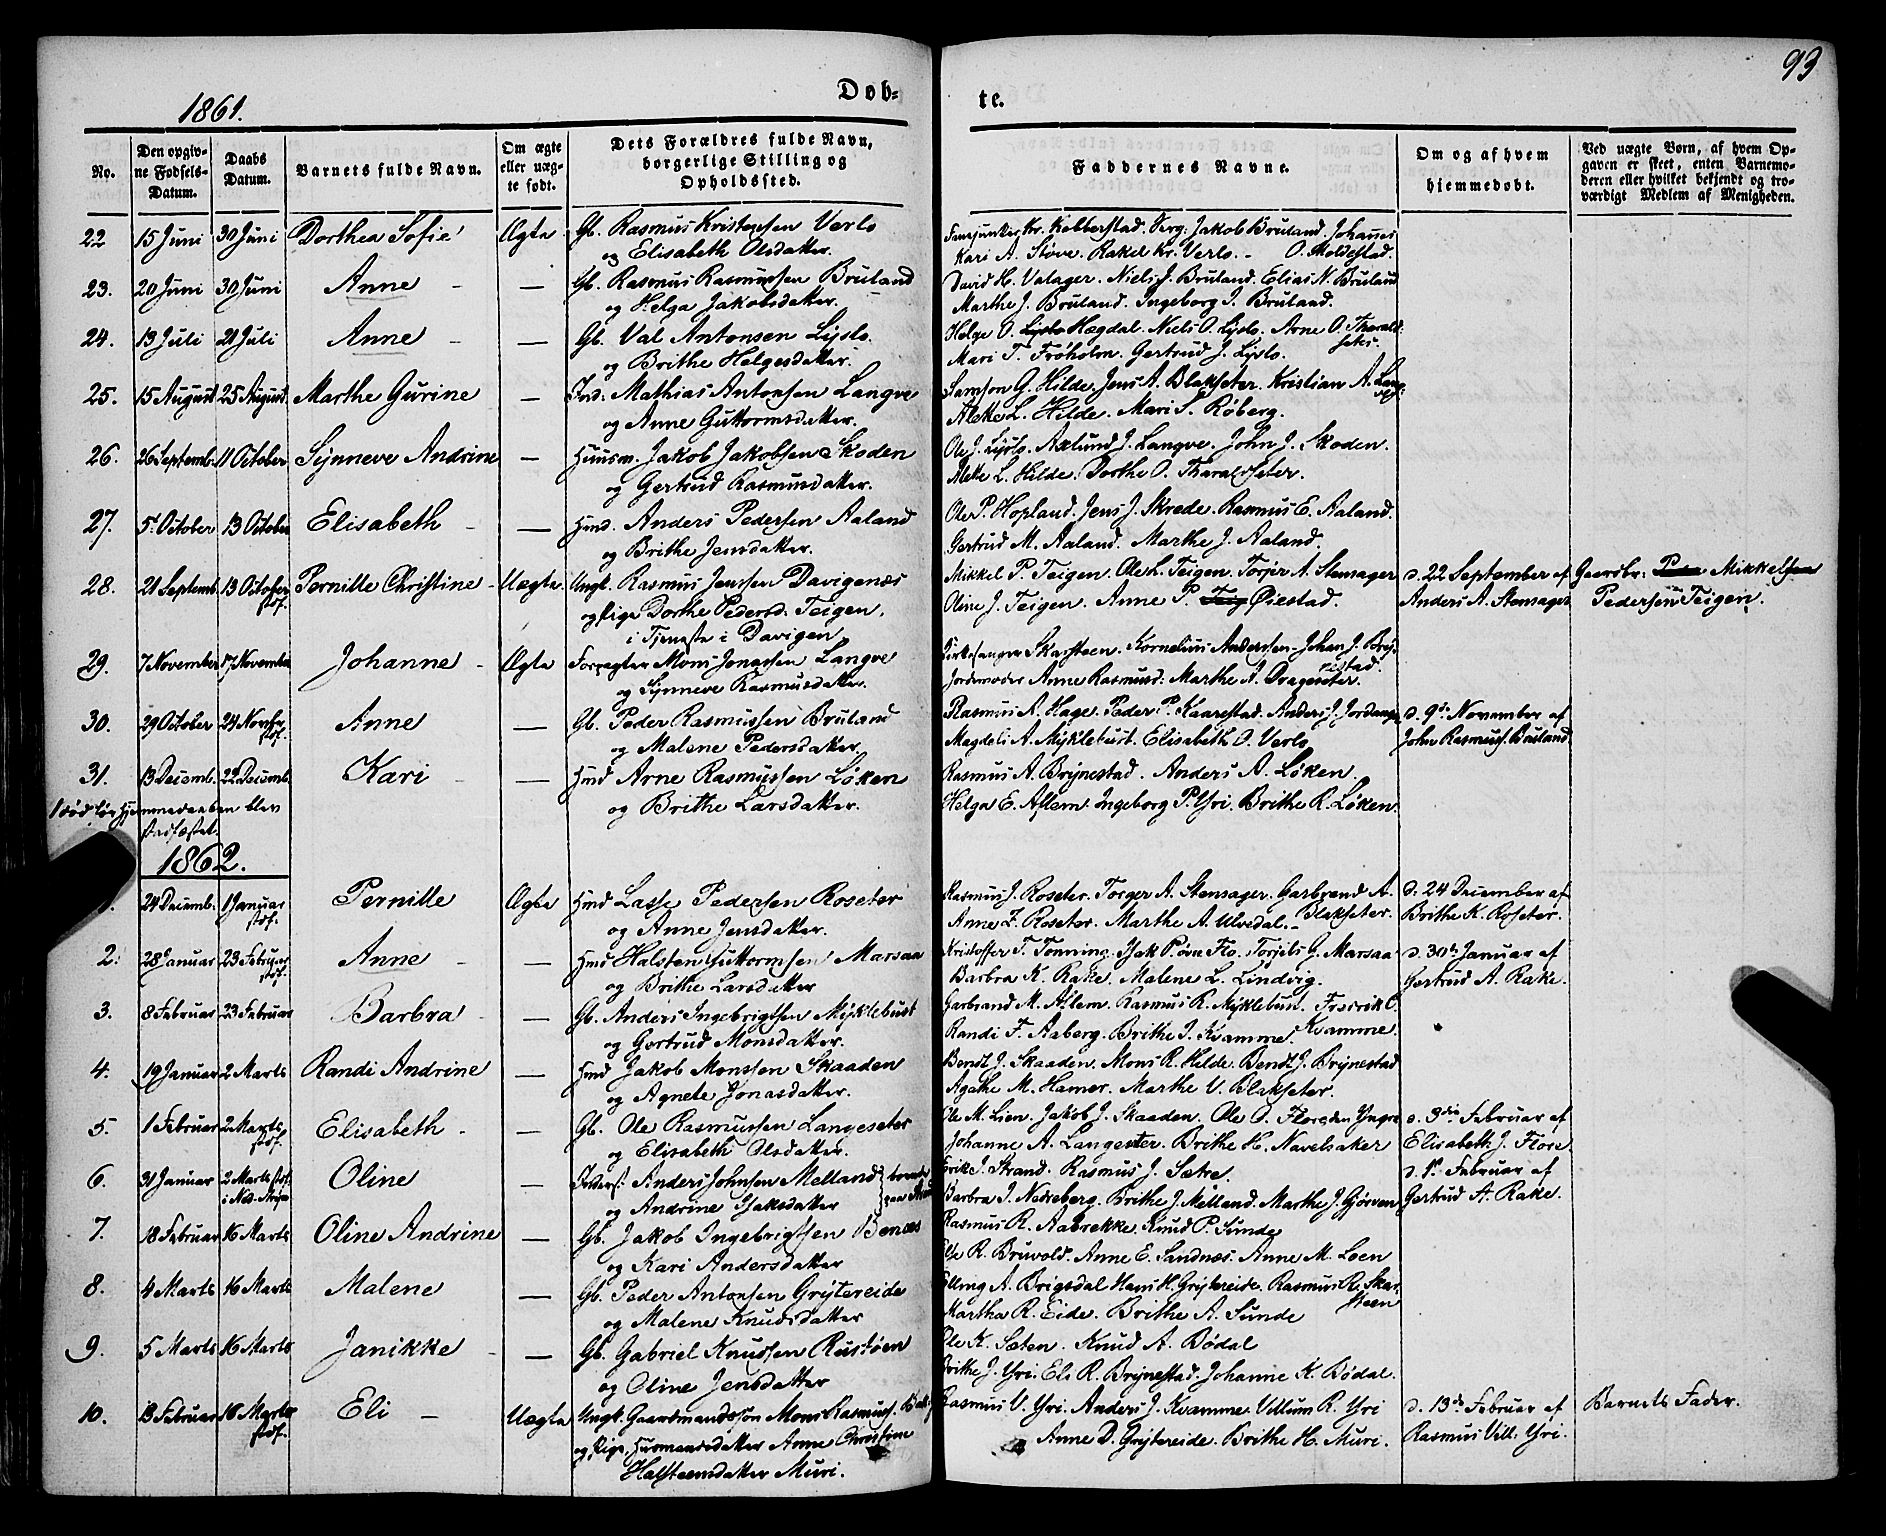 93
1861.
Døb-
te.
No.
Den opgiv-
ne Fødsels-
Datum.
Daabs
Datum.
Barnets fulde Navn.
Om ægte
eller uæg-
te født.
Dets Forældres fulde Navn,
borgerlige Stilling og
Opholdssted.
Faddernes Navne.
Om og af hvem
hjemmedøbt.
Ved uægte Børn, af hvem Op-
gaven er skeet, enten Barnemo-
deren eller hvilket bekjendt og tro-
værdigt Medlem af Menigheden.
22 15 Juni 30 Juni Dorthea Sofie Ægte Gb. Rasmus Kristensen Verlo
og Elisabeth Olsdatter.
Fansjunker Kr. Kobberstad. Serg: Jakob Bruland. Johannes
Kari A. Støve. Rakel Kr. Verlo. - O. Moldestad.
23. 20 Juni 30 Juni Anne - — Gb. Rasmus Rasmussen Bruland
og Helga Jakobsdatter.
David H. Valager. Niels J. Bruland. Elias N. Bruland
Marthe J. Bruland. Ingeborg I. Bruland.
24. 13 Juli 21 Juli Anne - — Gb. Val Antonsen Lijslo.
og Brithe Helgesdatter.
Helge O. Lijslo Hægdal. Niels O. Lijslo. Arne O. Tharald-
seter.
Mari T. Frøholm. Gertrud J. Lijslo.
25. 15 August 25 August. Marthe Gurine — Ind. Mathias Antonsen Langve
og Anne Guttormsdatter.
Samson G. Hilde. Jens A. Blakseter. Kristian A. Lang-
ve.
Alette L. Hilde. Mari S. Røberg.
26. 26 Septemb. 11 October Synneve Andrine — Huusm. Jakob Jakobsen Skoden
og Gertrud Rasmusdatter.
Ole J. Lijslo. Axlund J. Langve. John J. Skoden.
Mette L. Hilde. Dorthe O. Tharaldseter.
27. 5. October 13 October Elisabeth - — Hmd. Anders Pedersen Aaland
og Brithe Jensdatter.
Ole P. Hopland. Jens J. Skrede. Rasmus E. Aaland.
Gertrud M. Aaland. Marthe J. Aaland.
28. 21 Septemb. 13 October
stdf. Pernille Christine - Uægte Ungk. Rasmus Jenssen Davigenæs
og Pige Dorthe Pedersd. Teigen,
i Tjeneste i Davigen
Mikkel P. Teigen. Ole L. Teigen. Torjer A. Stensager
Oline J. Teigen. Anne P. Teig Øiestad.
d. 22 September af
Anders A. Stensager
Gaardbr. Peder Mikkelsen
Pedersen Teigen.
29. 7 November 17 November Johanne - Ægte Forpagter Mons Jonassen Langve
og Synneve Rasmusdatter.
Kirkesanger Skarsteen. Kornelius Anderssen. Johan J. Bryn-
estad.
Jordemoder Anne Rasmusd: Marthe A. Drageseter.
30. 29 October 24 Novbr.
stdf. Anne — Gb. Peder Rasmussen Bruland
og Malene Pedersdatter.
Rasmus A. Hage. Peder P. Kaarestad. Anders J. Jordanger
Magdeli A. Myklebust. Elisabeth O. Verlo
d. 9de November af
John Rasmuss. Bruland
31. 13 Decemb. 22 Decemb. Kari - — Hmd Arne Rasmussen Løken
og Brithe Larsdatter.
Rasmus A. Brynestad. Anders A. Løken.
Helga E. Aflem. Ingeborg P. Yri. Brithe R. Løken.
1 død før Hjemmedaaben blev
stadfæstet.
1862.
24 Decemb. 1 Januar
stdf. Pernille Ægte Hmd Lasse Pedersen Roseter
og Anne Jensdatter.
Rasmus J. Roseter. Torger A. Stensager. Garbrand A.
Blakseter.
Anne Z. Roseter. Marthe A. Ulvedal. -
d. 24 December af
Brithe K. Roseter.
2. 28 Januar 23 Februar
stdf. Anne - — Hmd Halsten Guttormsen Marsaa
og Brithe Larsdatter
Kristoffer T. Tonning. Isak P. øvre Flo. Torjels G. Marsaa
Barbra K. Rake. Malene L. Lindvig.
d. 30te Januar af
Gertrud A. Rake.
3. 8 Februar 23 Februar Barbra - — Gb. Anders Ingebrigtsen Myklebust
og Gertrud Monsdatter.
Garbrand M. Aflem. Rasmus R. Myklebust. Fredrik C.
Kvamme.
Randi F. Aaberg. Brithe I. Kvamme.
4. 19 Januar 2 Marts Randi Andrine — Hmd Jakob Monssen Skaaden
og Agnete Jonasdatter.
Bendt J. Skaaden. Mons R. Hilde. Bendt J. Brynestad
Agathe M. Hamer. Marthe V. Blakseter.
5. 1 Februar 2 Marts
stdf. Elisabeth - — Gb. Ole Rasmussen Langeseter
og Elisabeth Olsdatter.
Ole M. Lien. Jakob J. Skaaden. Ole O. Flore den Yngre
Johanne A. Langeseter. Brithe H. Navelsaker
d. 3die Februar af
Elisabeth J. Flore
6. 31 Januar 2 Marts stdf.
i Ned. Stryn Oline — Inderst. Anders Johnsen Melland
og Andrine Isaksdatter
Erik J. Strand. Rasmus J. Sætre.
Barbra I. Nedreberg. Brithe J. Melland. Marthe J. Gjørven
d. 1ste Februar af
Gertrud A. Rake.
7. 18 Februar 16 Marts Oline Andrine — Gb. Jakob Ingebrigtsen Benæs
og Kari Andersdatter
Rasmus R. Aabrekke. Knud P. Sunde
Else R. Bruvold. Anne E. Sandnæs. Anne M. Loen
8. 4 Marts 16 Marts Malene — Gb. Peder Antonsen Grytereide
og Malene Knudsdatter
Elling A. Brigsdal Hans H. Grytereide. Rasmus R. Skar-
steen
Martha R. Eide. Brithe A. Sunde
9. 5 Marts 16 Marts Janikke - — Gb. Gabriel Knussen Rustøen
og Oline Jensdatter
Ole K. Sæten. Knud A. Bødal
Brithe J. Yri. Eli R. Brynestad. Johanne K. Bødal.
10. 13 Februar 16 Marts
stdf. Eli - Uægte Ungk. Gaardmandssøn Mons Rasmuss.
og Pige Husmansdatter Anne Christine
Halsteensdatter Muri.
Rasmus V. Yri. Anders J. Kvamme. Villum R. Yri
Anne D. Grytereide. Brithe H. Muri.
d. 13de Februar af
Rasmus Vill. Yri.
Barnets Fader.